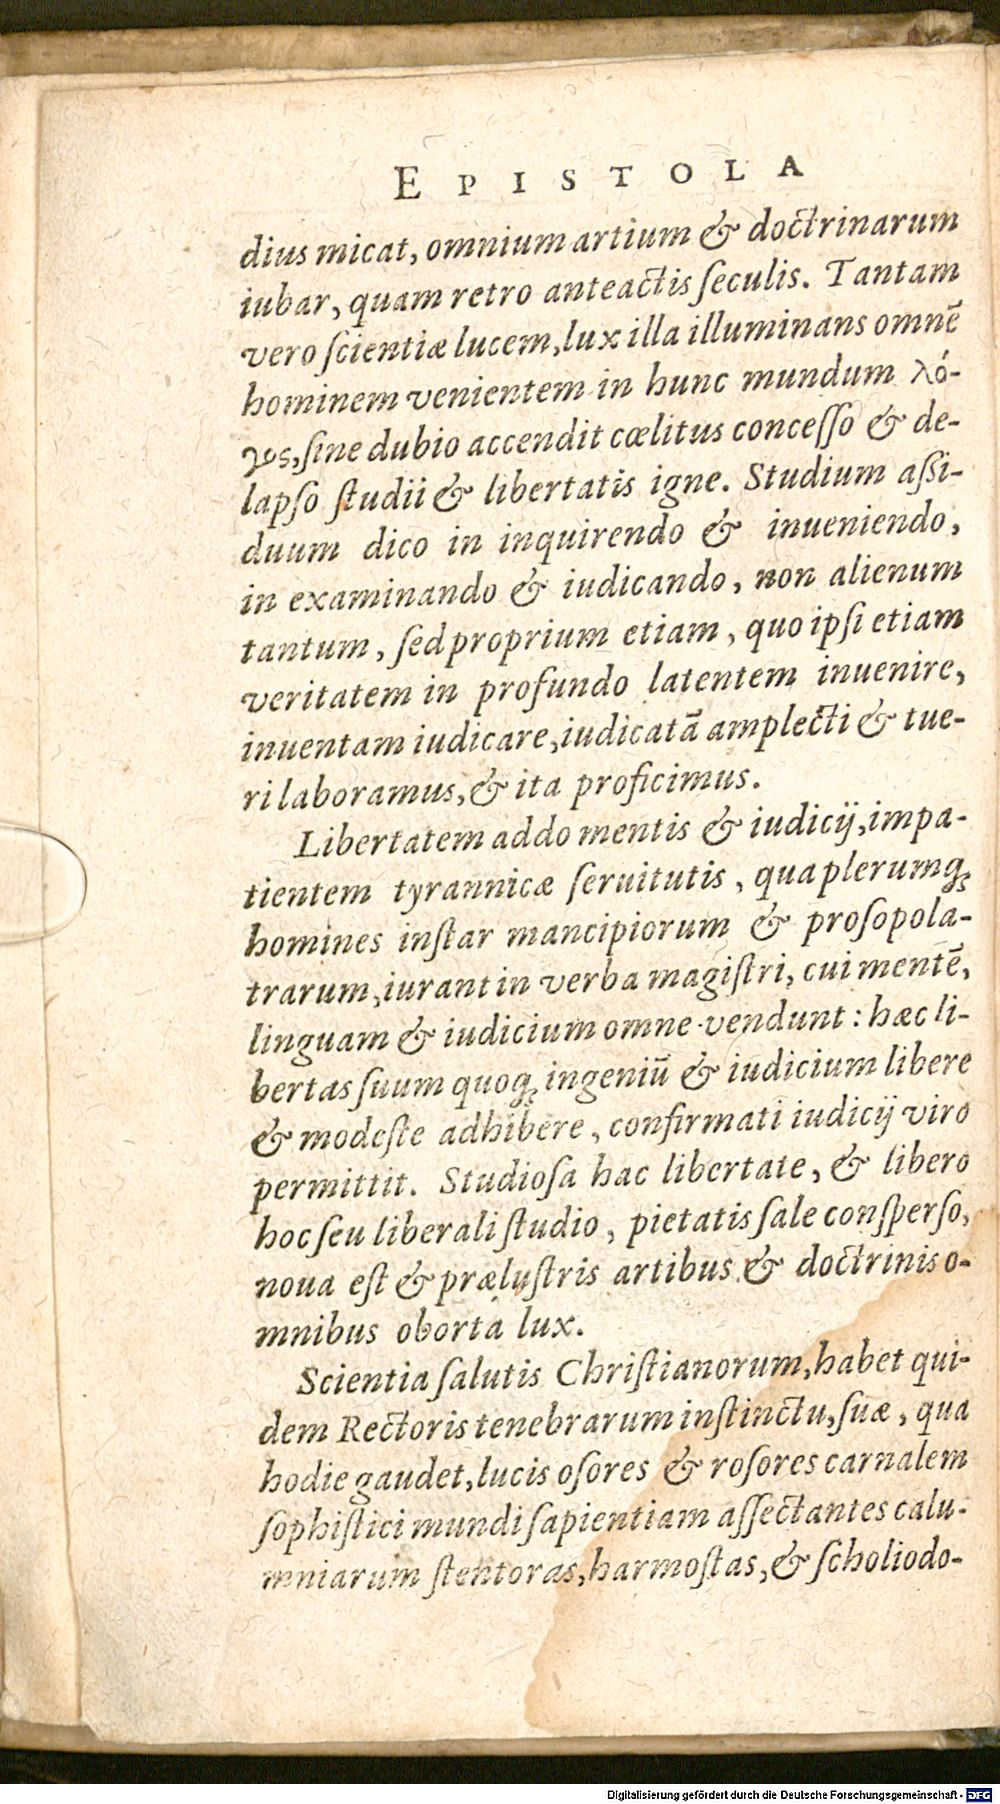 EPISTOLA
dius micat, omnium artium & doctrinarum
iubar, quam retro anteactis ſeculis. Tantam
vero ſcientiæ lucem, lux illa illuminans omnē
hominem venientem in hunc mundum λό-
γος, ſine dubio accendit cœlitus conceſſo & de-
lapſo ſtudii & libertatis igne. Studium aſſi-
duum dico in inquirendo & inueniendo,
in examinando & iudicando, non alienum
tantum, ſed proprium etiam, quo ipſi etiam
veritatem in profundo latentem inuenire,
inuentam iudicare, iudicatā amplecti & tue-
ri laboramus, & ita proficimus.
Libertatem addo mentis & iudicij, impa-
tientem tyrannicæ ſeruitutis, qua plerumq;
homines inſtar mancipiorum & proſopola-
trarum, iurant in verba magiſtri, cui mentē,
linguam & iudicium omne vendunt: hæc li-
bertas ſuum quoq; ingeniū & iudicium libere
& modeſte adhibere, confirmati iudicij viro
permittit. Studioſa hac libertate, & libero
hoc ſeu liberali ſtudio, pietatis ſale conſperſo,
noua eſt & præluſtris artibus & doctrinis o-
mnibus oborta lux.
Scientia ſalutis Chriſtianorum, habet qui-
dem Rectoris tenebrarum inſtinctu, ſuæ, qua
hodie gaudet, lucis oſores & roſores carnalem
ſophiſtici mundi ſapientiam aſſectantes calu-
mniarum ſtentoras, harmoſtas, & ſcholiodo-
Digitalisierung gefördert durch die Deutsche Forschungsgemeinschaft - DFG